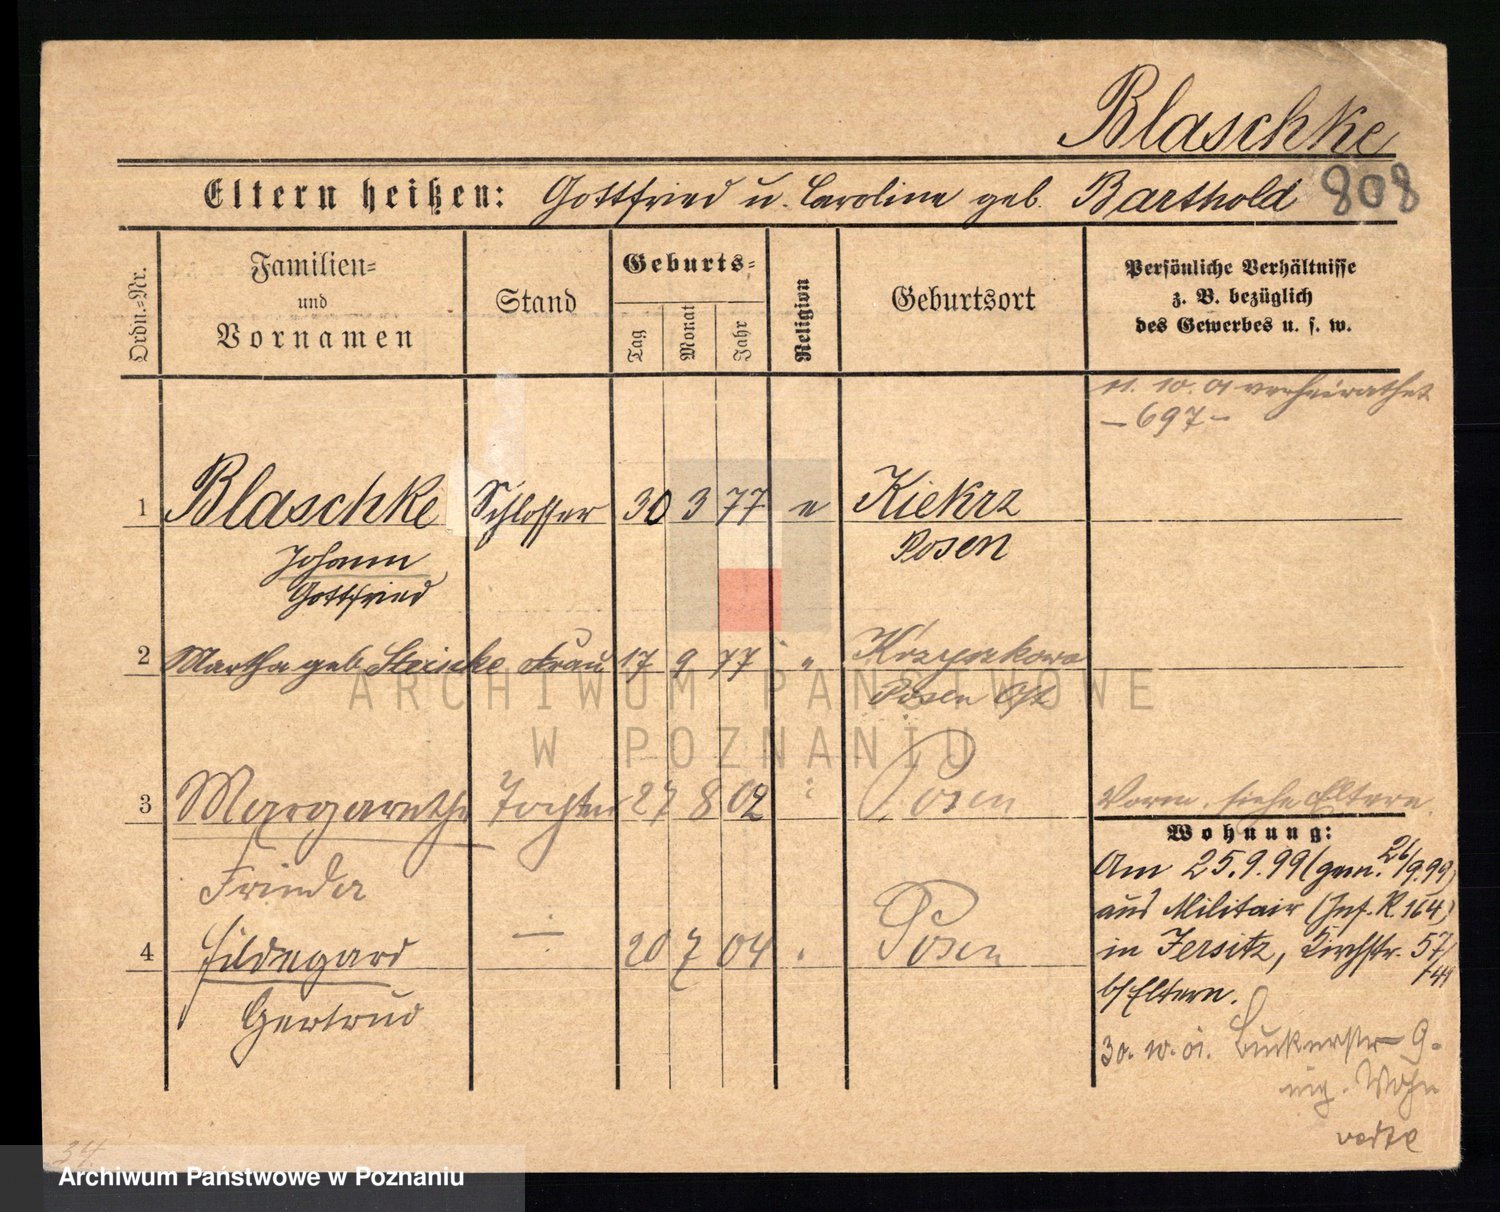 Blaschke
Eltern heißen: Gottfried u. Caroline geb. Barthold 808
Ordn.-Nr.
Familien-
und
Vornamen
Stand
Geburts-
Tag
Monat
Jahr
Religion
Geburtsort
Persönliche Verhältnisse
z. B. bezüglich
des Gewerbes u. s. w.
11. 10. 01 verheirathet
- 697 -
1 Blaschke Schlosser 30 3 77 e Kiekrz
Johann Posen
Gottfried
2 Martha geb. Frau 17 9 77 " 
Posen Ost
3 Margarethe Tochter 27 8 02 Posen
Frieda
4 Hildegard - 20 7 04 Posen
Gertrud
Vorm. siehe Eltern.
Wohnung:
Am 25.9.99 (gem. 26/9.99)
aus Militair (Inf. R. 164)
in Jersitz, Kirchstr. 57/
b/Eltern.
30. 10. 01. 9.
verte
34
ARCHIWUM PAŃSTWOWE
W POZNANIU
Archiwum Państwowe w Poznaniu